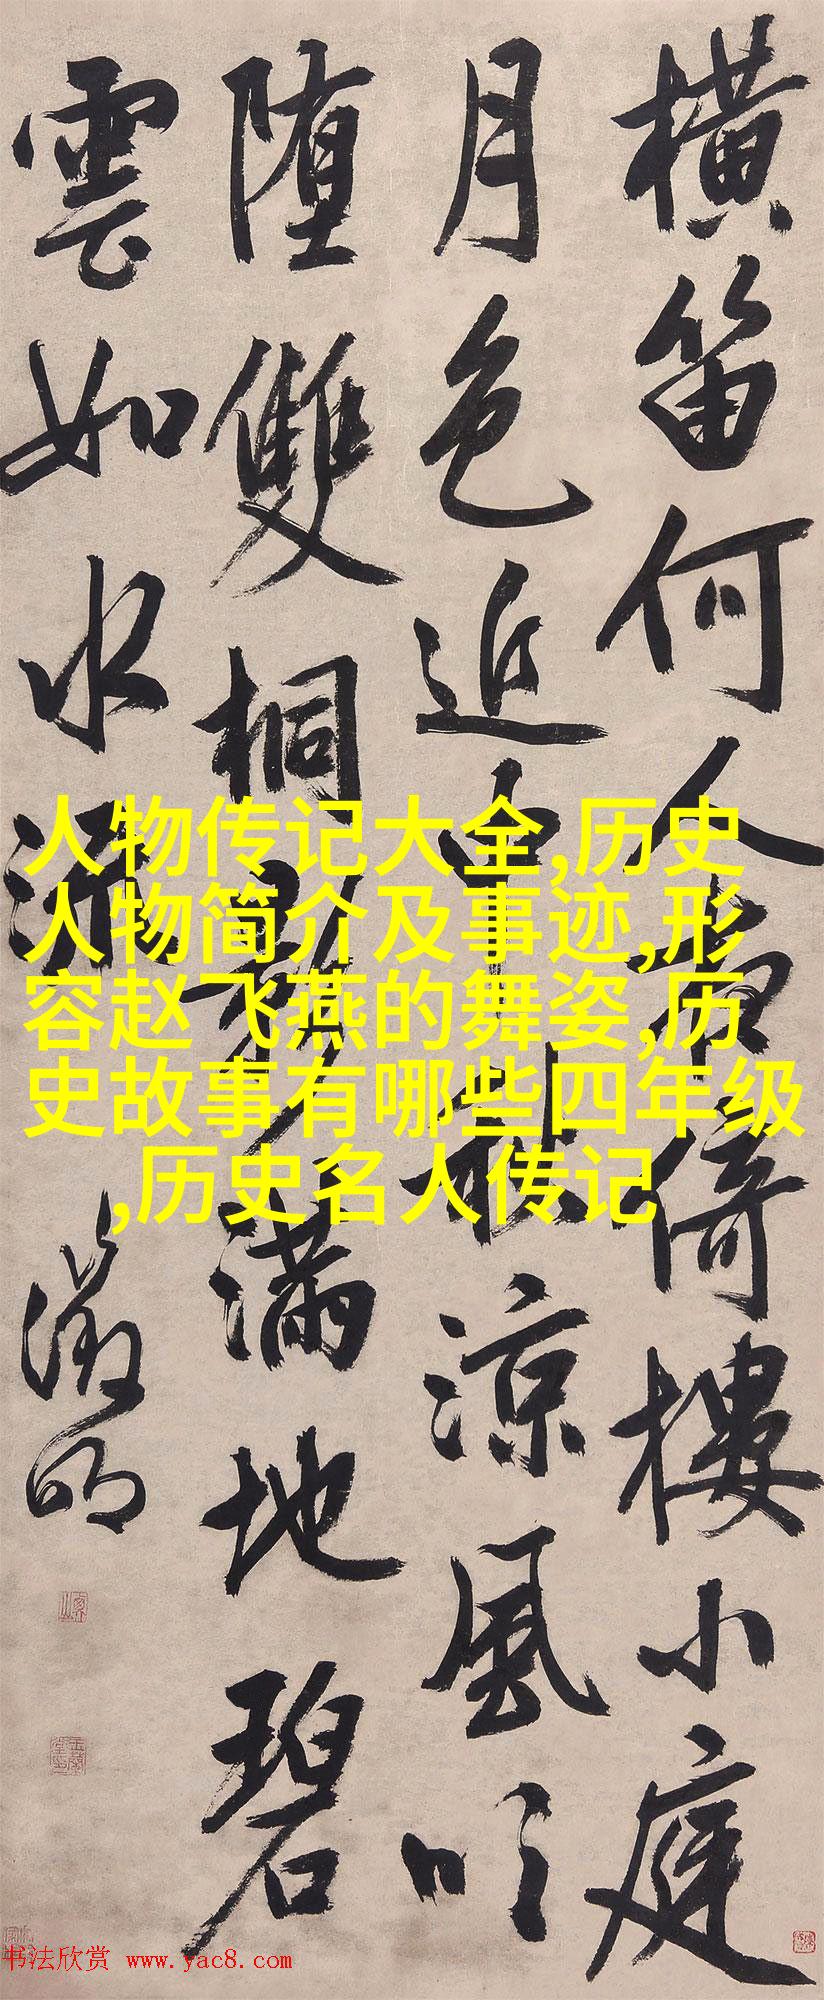 橫笛何人夜倚樓小庭
月色近中秋涼風吹
堕雙桐影滿地碧
雲如水流
徵明
人物传记大全,历史
人物简介及事迹,形
容赵飞燕的舞姿,历
史故事有哪些四年级
,历史名人传记
书法欣赏 www.yac8.com